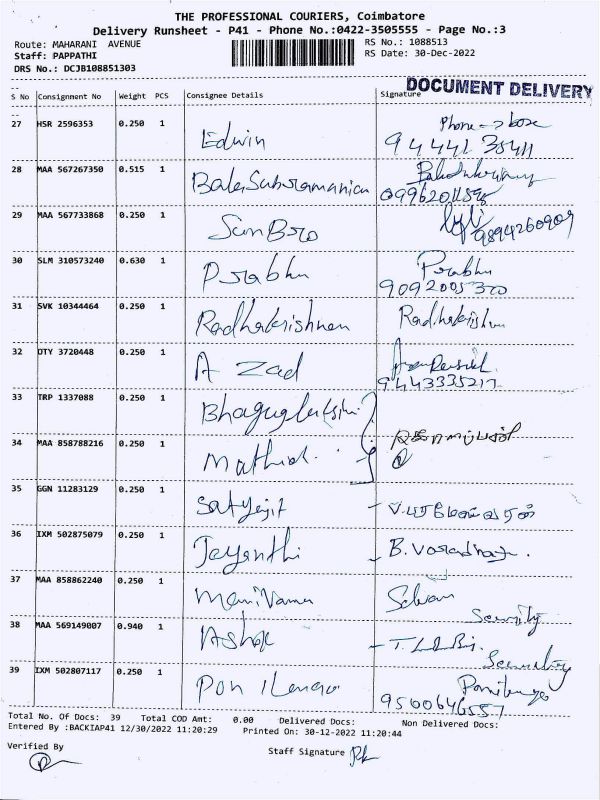 THE PROFESSIONAL COURIERS, Coimbatore
Delivery Runsheet - P41 - Phone No.:0422-3505555 - Page No.:3
Route: MAHARANI AVENUE RS No.: 1088513
Staff: PAPPATHI RS Date: 30-Dec-2022
DRS No.: DCJB108851303
DOCUMENT DELIVERY
S No Consignment No Weight PCS Consignee Details Signature
27 HSR 2596353 0.250 1 Edwin Phone -> base
94441 35411
28 MAA 567267350 0.515 1 BalaSubramanian
29 MAA 567733868 0.250 1 SunBro 9894260909
30 SLM 310573240 0.630 1 Prabhu Prabhu
9092005320
31 SVK 10344464 0.250 1 Radhakrishnan Radhakrishn
32 OTY 3720448 0.250 1 A Zad
9443335217
33 TRP 1337088 0.250 1
34 MAA 858788216 0.250 1
35 GGN 11283129 0.250 1 Satyejit
36 IXM 502875079 0.250 1 Jeyanthi
37 MAA 858862240 0.250 1 Selvam
Security
38 MAA 569149007 0.940 1 Ashok
Security
39 IXM 502807117 0.250 1 Pon
9500646557
Total No. Of Docs: 39 Total COD Amt: 0.00 Delivered Docs: Non Delivered Docs:
Entered By :BACKIAP41 12/30/2022 11:20:29 Printed On: 30-12-2022 11:20:44
Verified By Staff Signature